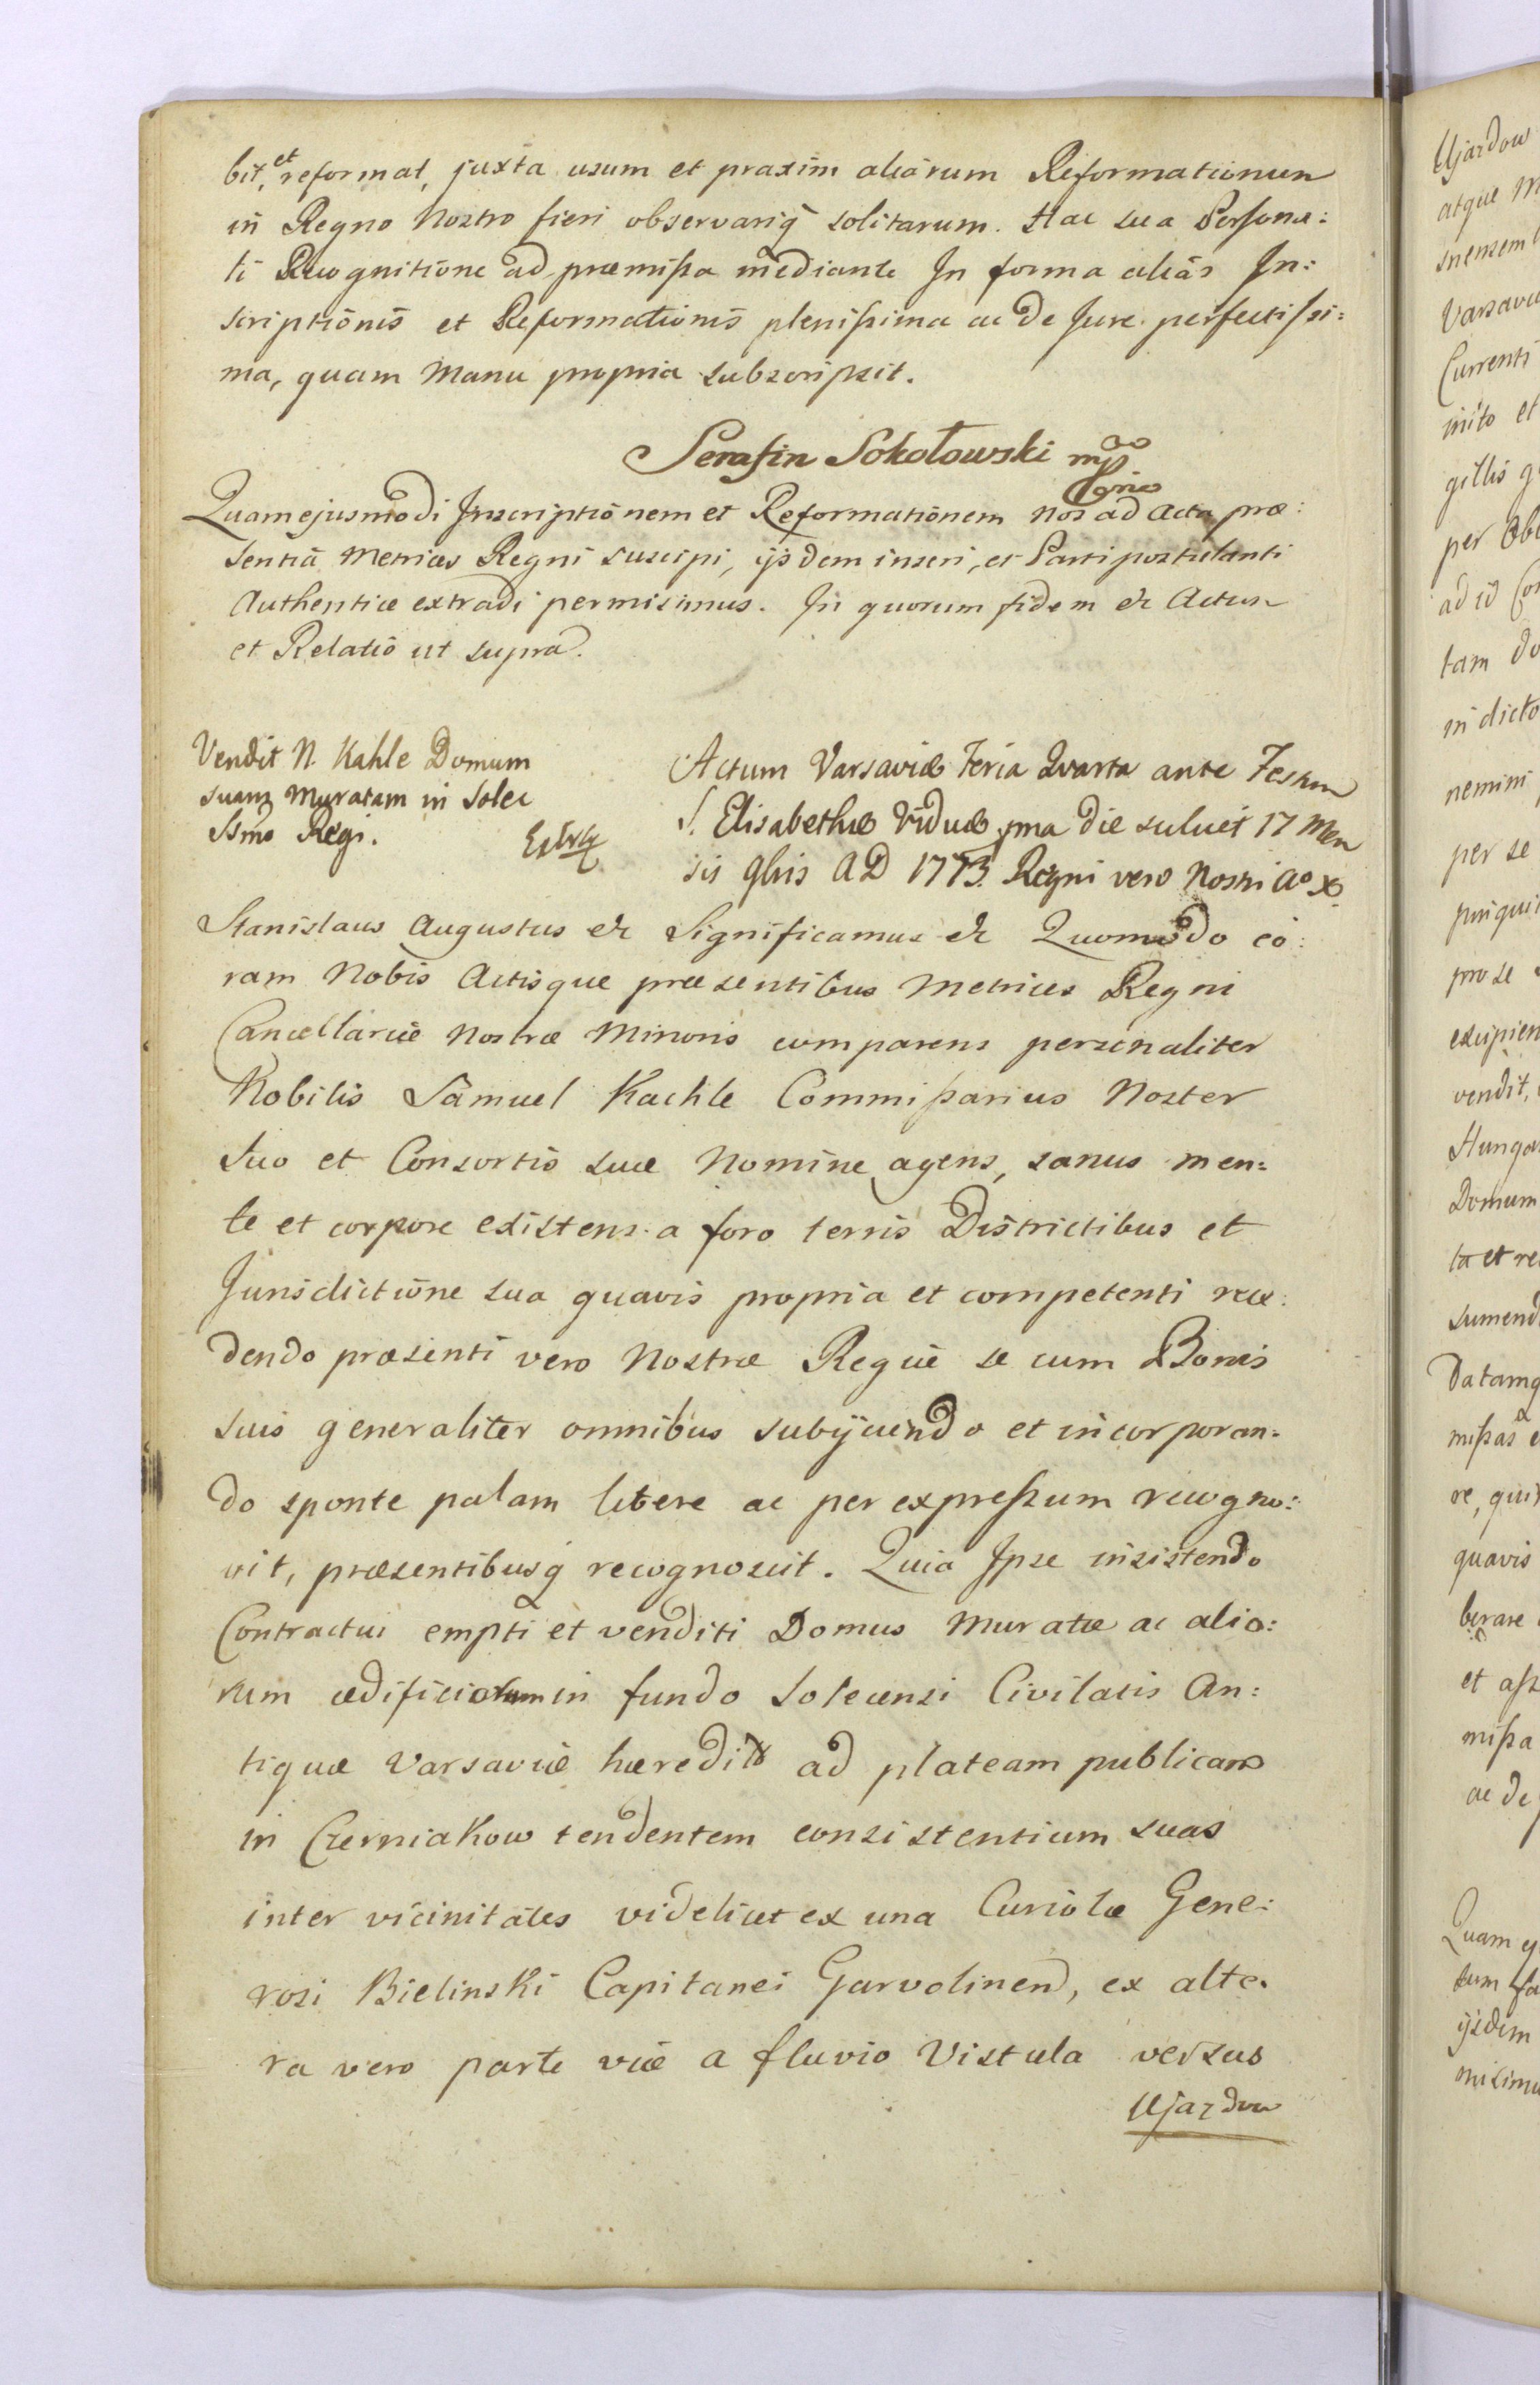 bit, et reformat, juxta usum et praxim aliarum Reformationum
in Regno Nostro fieri observariq̃ solitarum. Hac sua Persona:
li Recognitione ad præmissa mediante In forma aliàs In:
scriptionis et Reformationis plenissima ac de Jure perfectissi:
ma, quam Manu propria subscripsit.
Serafin Sokołowski mp
Quam ejusmodi Inscriptionem et Reformationem Nos ad Acta præ:
sentia Metrices Regni suscipi, ijsdem inseri, et Parti postulanti
Authentice extradi permisimus. In quorum fidem &c Actum
et Relatio ut supra.
Vendit N. Kahle Domum
suam Muratam in Solec
Ssmo Regi.
Actum Varsaviæ Feria Quarta ante Festum
S. Elisabethæ Viduæ pma die scilicet 17 Men
sis 9bris AD 1773. Regni vero Nostri Aº X
Stanislaus Augustus &c Significamus &c Quomodo co:
ram Nobis Actisque præsentibus Metrices Regni
Cancellariæ Nostræ Minoris comparens personaliter
Nobilis Samuel Kachle Commissarius Noster
Suo et Consortis suæ Nomine agens, sanus men:
te et corpore existens a foro terris Districtibus et
Jurisdictione sua quavis propria et competenti rece:
dendo præsenti vero Nostræ Regiæ se cum Bonis
suis generaliter omnibus subijciendo et incorporan:
do sponte palam libere ac per expressum recogno:
vit, præsentibusq̃ recognoscit. Quia Ipse insistendo
Contractui empti et venditi Domus Muratæ ac alio:
rum ædificiorum in fundo Solecensi Civitatis An:
tiquæ Varsaviæ hæredit ad plateam publicam
in Czerniakow tendentem consistentium suas
inter vicinitates videlicet ex una Curiolæ Gene:
rosi Bielinski Capitanei Garvolinen, ex alte:
ra vero parte viæ a fluvio Vistula versus
Ujazdow
Ujazdow
atque
Varsavi
Currenti
inito et
gillis
per
ad id
tam
in dicto
nemini
per se
pro se
vendit,
Domum
quavis
et
missa
ac de
Quam
ijsdem